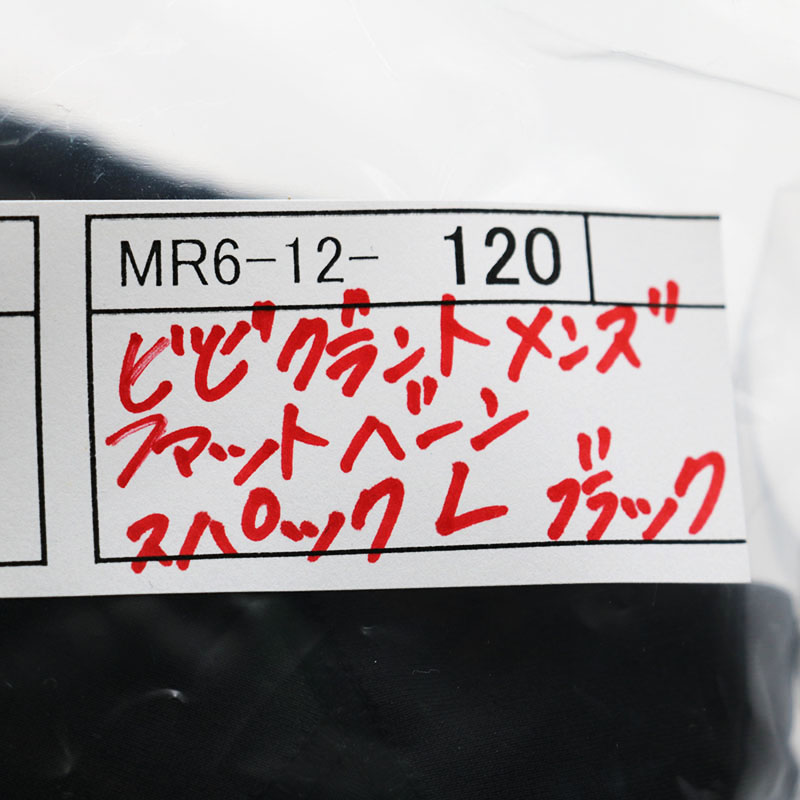 MR6-12- 120
ビビグラントメンズ
スマットベーン
スパッツク L ブラック